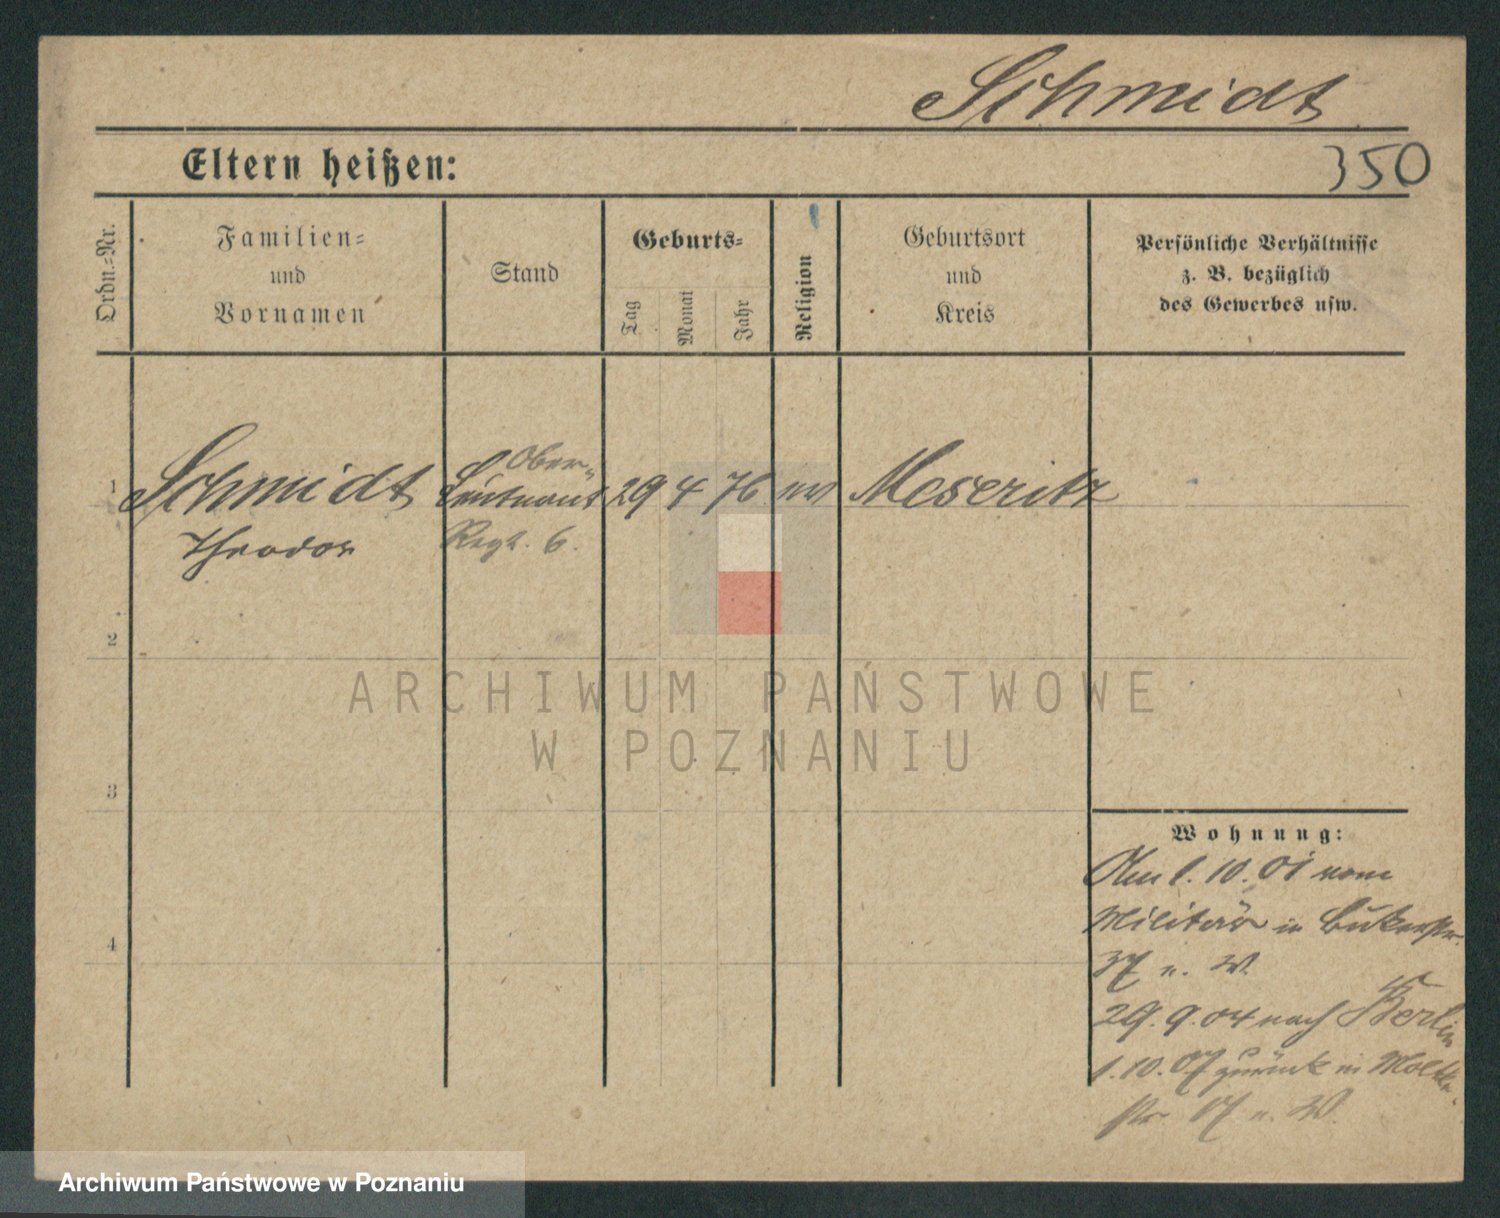 Schmidt
Eltern heißen:
350
Ordn.-Nr.
Familien-
und
Vornamen
Stand
Geburts-
Tag
Monat
Jahr
Religion
Geburtsort
und
Kreis
Persönliche Verhältnisse
z. B. bezüglich
des Gewerbes usw.
Ober-
1 Schmidt Leutnant 29 4 76 ev Meseritz
Theodor Regt. 6.
2
3
4
ARCHIWUM PAŃSTWOWE
W POZNANIU
Wohnung:
Am 1. 10. 01 vom
Militär in Bukerstr.
37 n. W.
29. 9. 04 nach Berlin
1. 10. 07 zurück in Moltke
str. n. W.
Archiwum Państwowe w Poznaniu